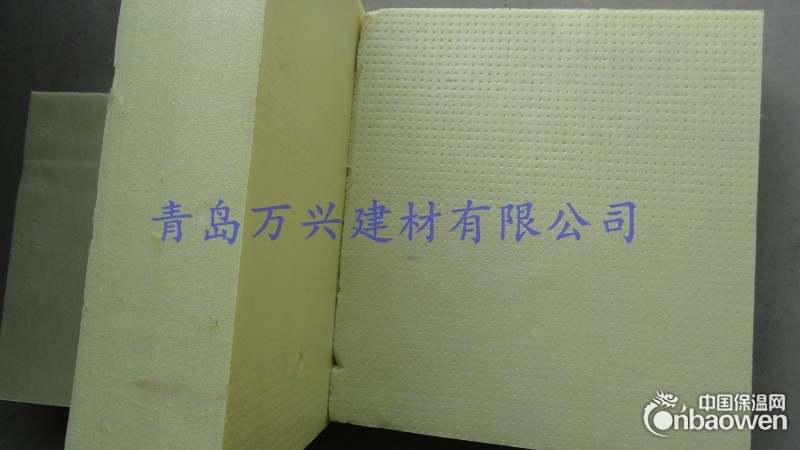 青岛万兴建材有限公司
中国保温网
cnbaowen